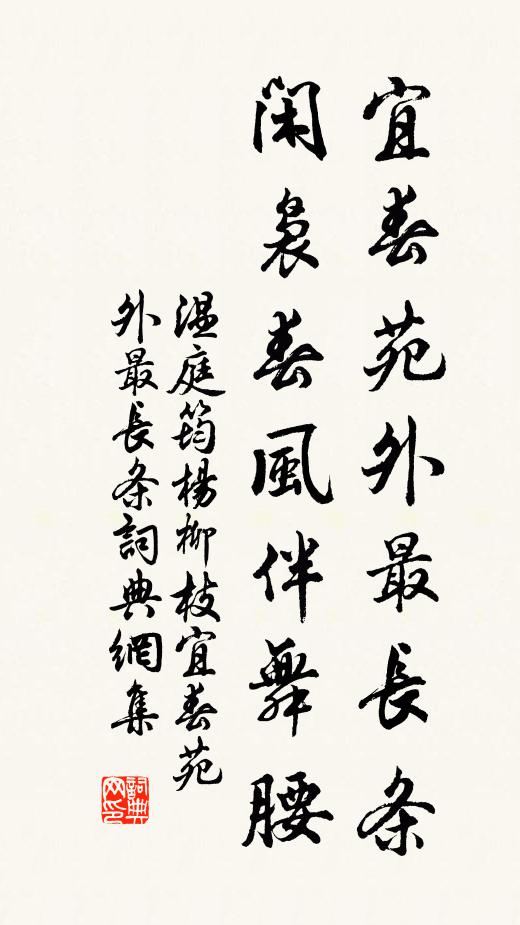 宜春苑外最長条
閑裊春風伴舞腰
温庭筠楊柳枝宜春苑
外最長条詞典網集
詞典
网印